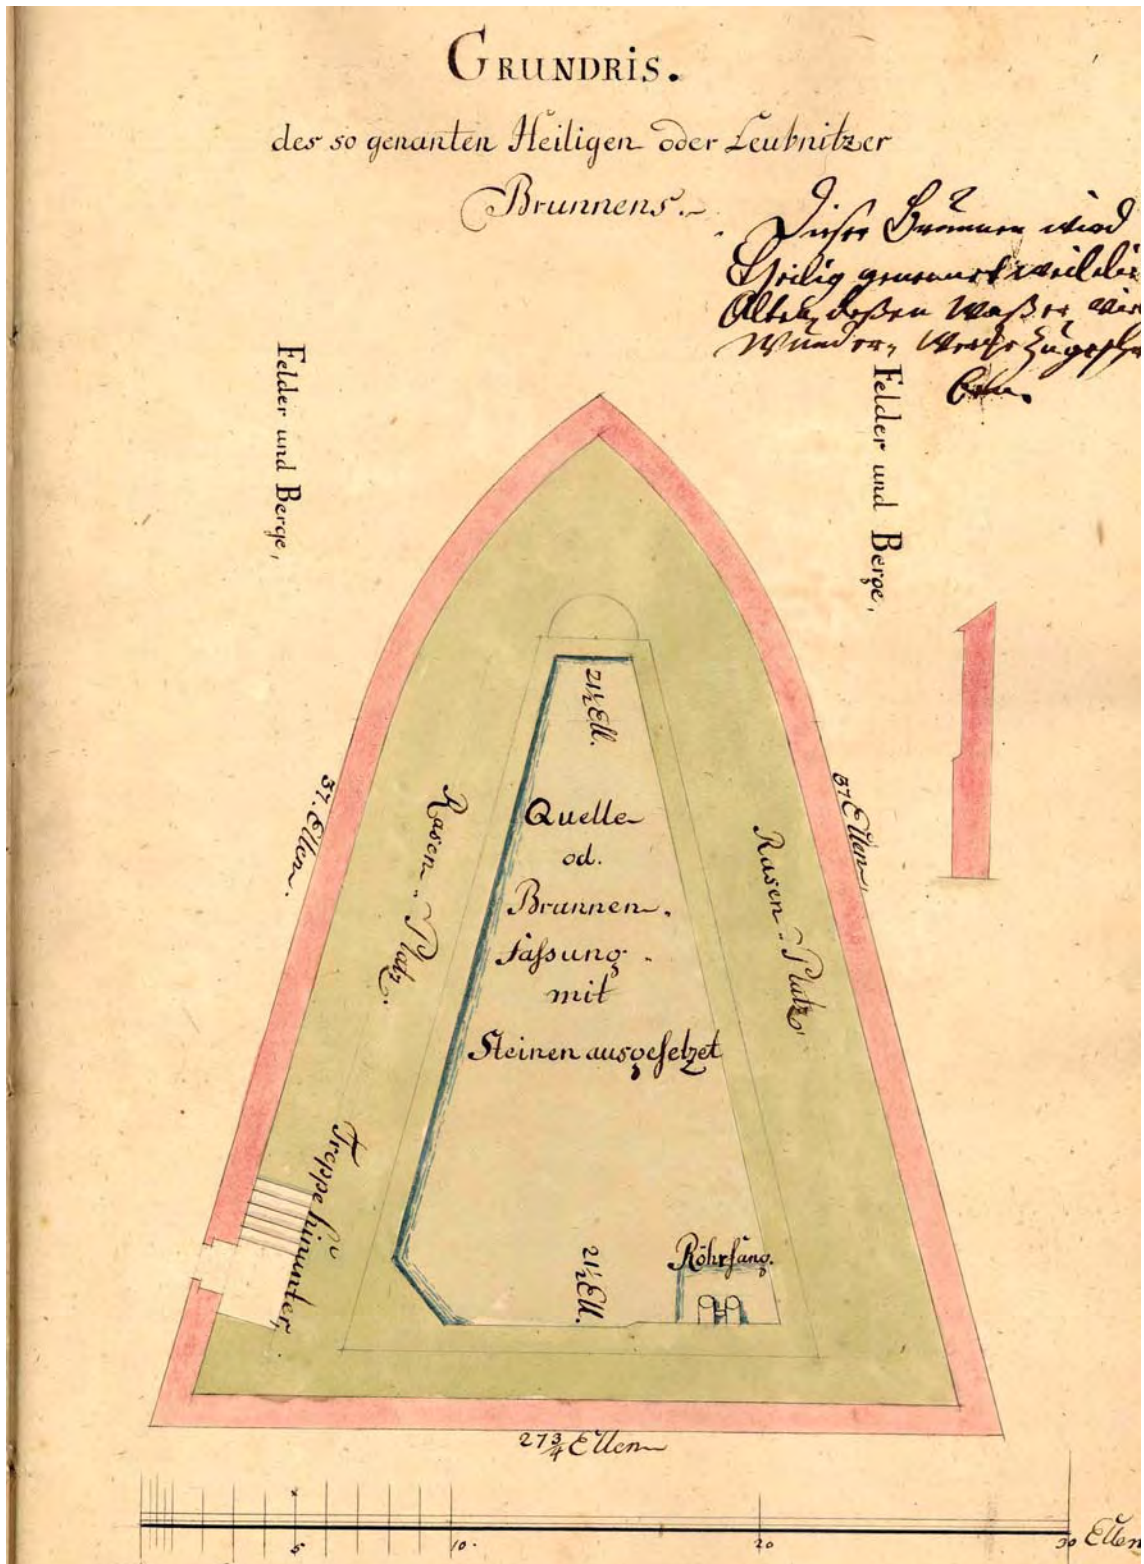 GRUNDRIS.
des so genanten Heiligen oder Leubnitzer
Brunnens.
Dieser Brunnen wird
Heilig genennet weil die
Alten deßen Waßer vie
Wunder Wercke zugeschr
ben.
Felder und Berge,
Felder und Berge,
21½ Ell.
37. Ellen.
37 Ellen
Rasen-Platz.
Rasen-Platz
Quelle
od.
Brunnen-
fassung
mit
Steinen ausgesetzet
Treppe hinunter,
21½ Ell.
Röhrfäng.
27¾ Ellen
5.
10.
20
30 Ellen